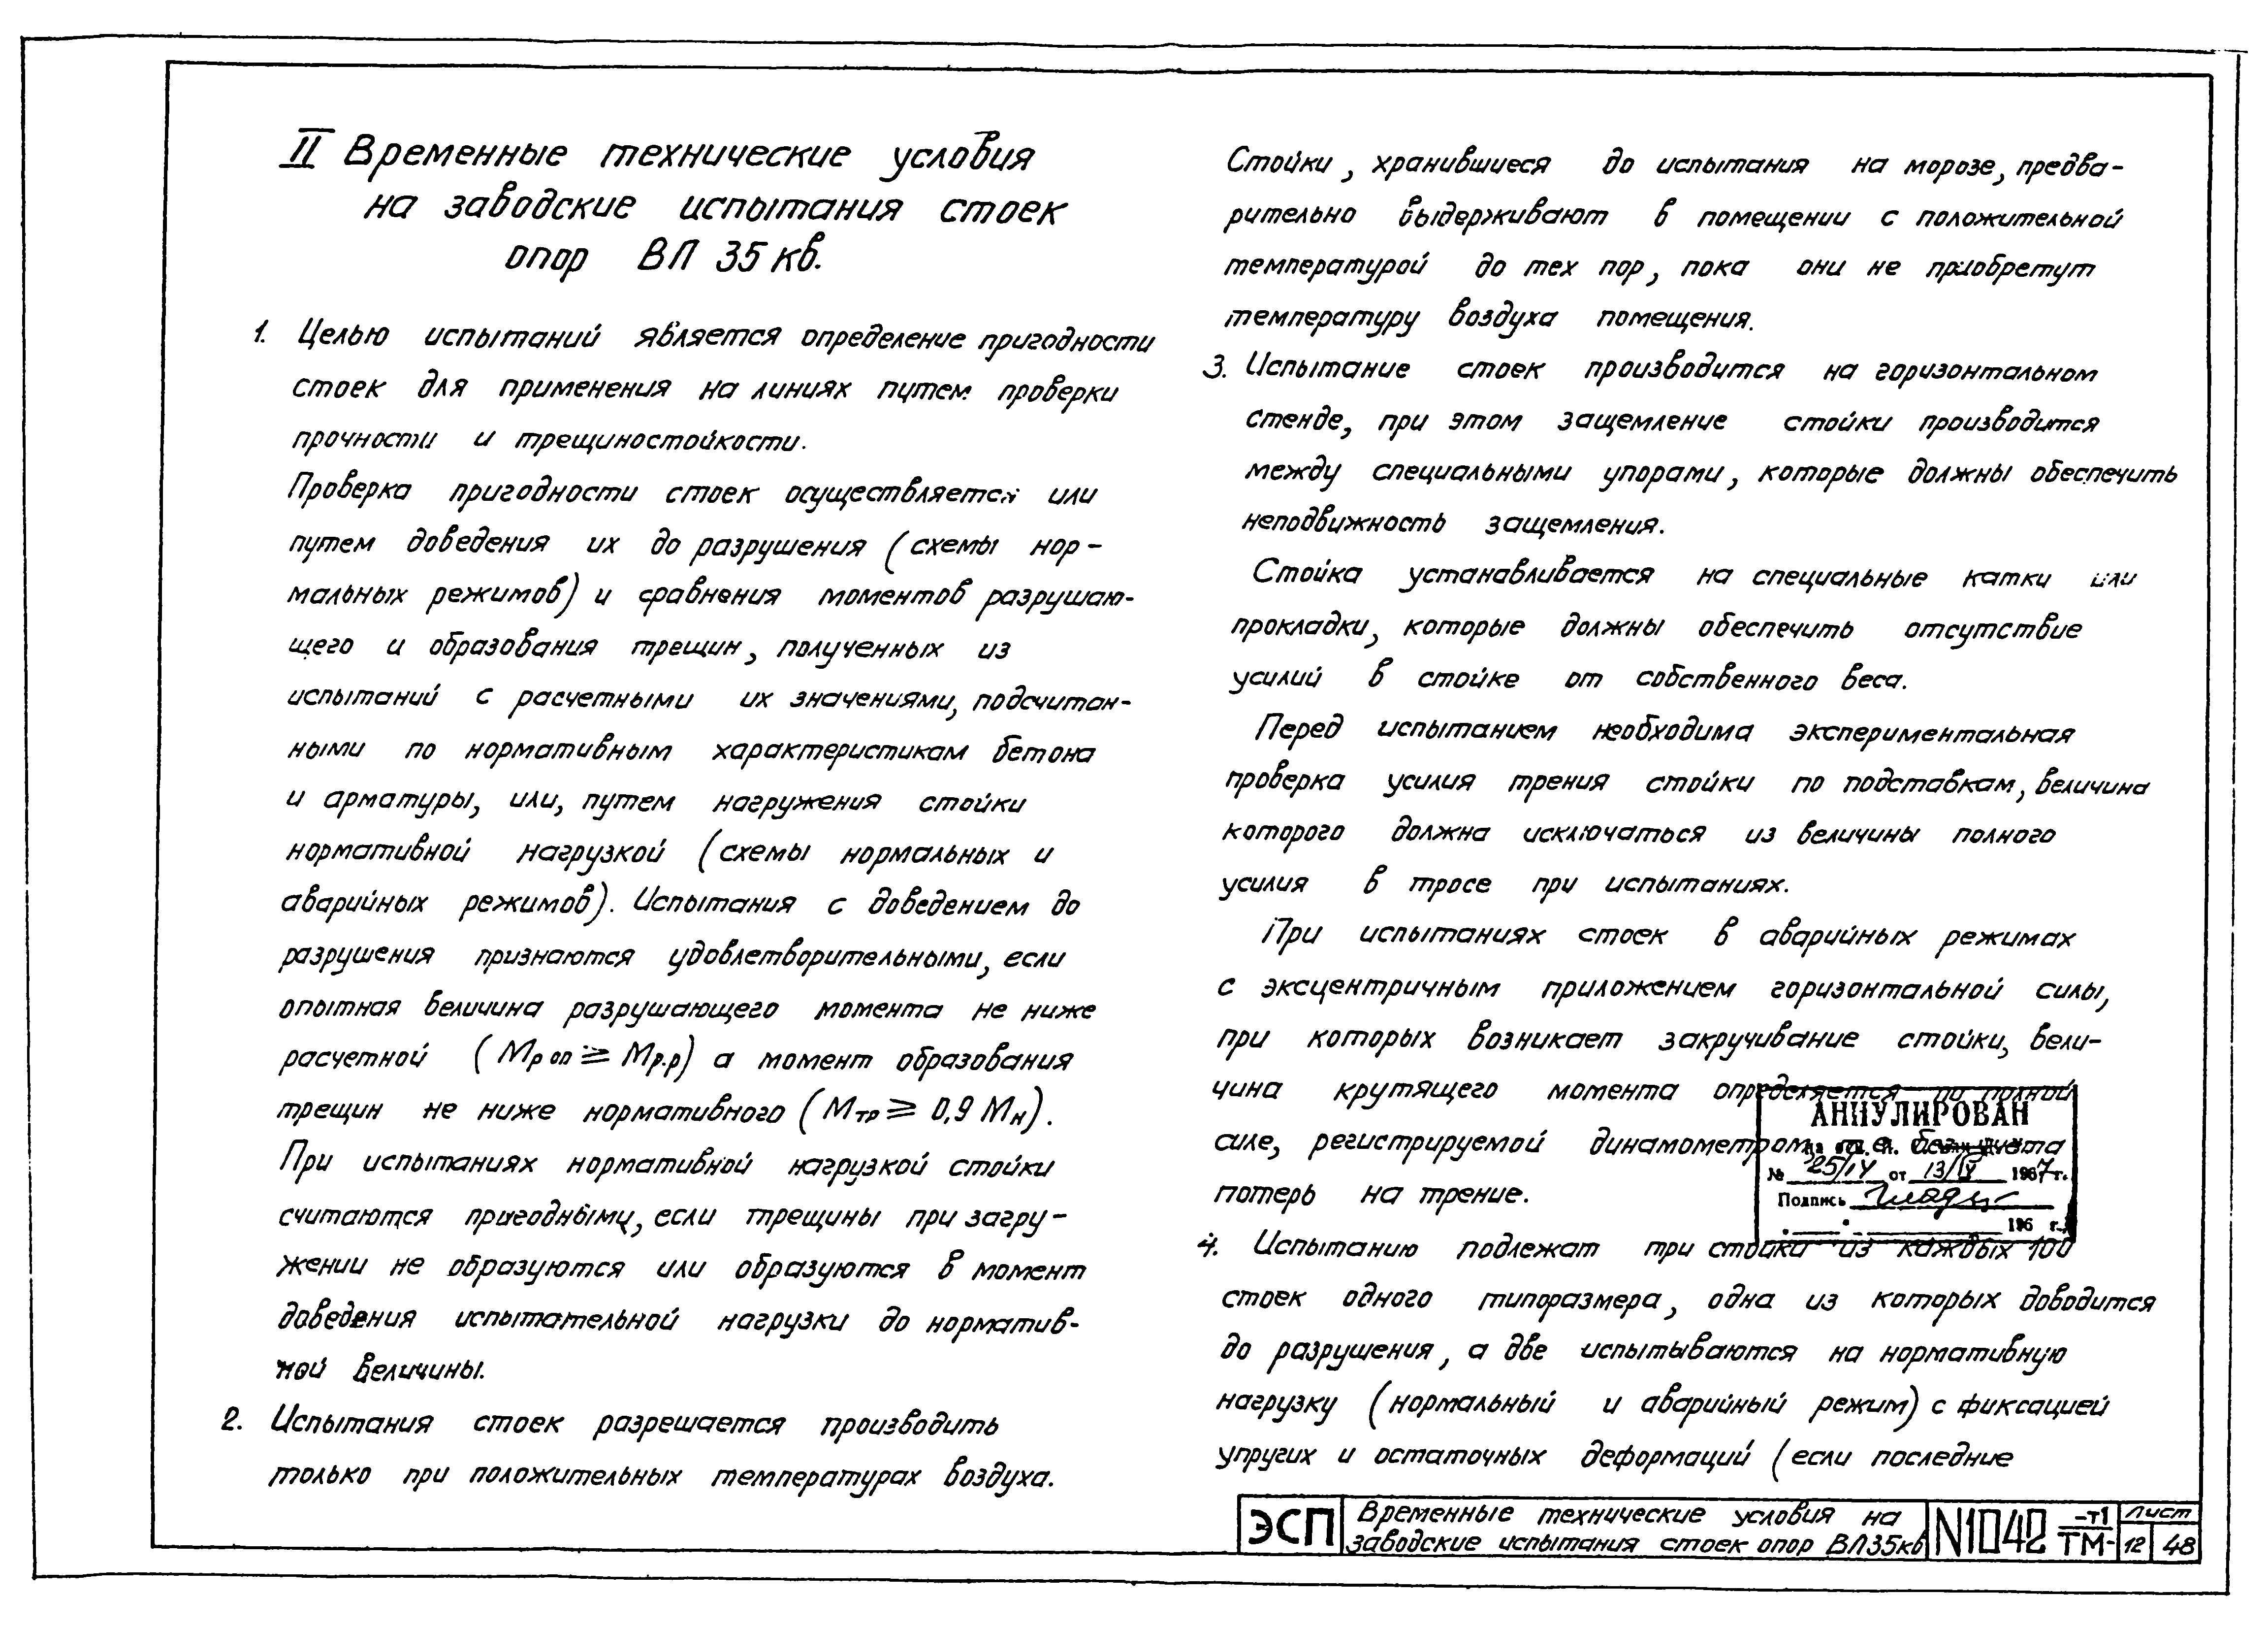 II Временные технические условия
на заводские испытания стоек
опор ВЛ 35 кв.
1. Целью испытаний является определение пригодности
стоек для применения на линиях путем проверки
прочности и трещиностойкости.
Проверка пригодности стоек осуществляется или
путем доведения их до разрушения (схемы нор-
мальных режимов) и сравнения моментов разрушаю-
щего и образования трещин, полученных из
испытаний с расчетными их значениями, подсчитан-
ными по нормативным характеристикам бетона
и арматуры, или, путем нагружения стойки
нормативной нагрузкой (схемы нормальных и
аварийных режимов). Испытания с доведением до
разрушения признаются удовлетворительными, если
опытная величина разрушающего момента не ниже
расчетной (Мр оп ≥ Мр.р) а момент образования
трещин не ниже нормативного (Мтр ≥ 0,9 Мн).
При испытаниях нормативной нагрузкой стойки
считаются пригодными, если трещины при загру-
жении не образуются или образуются в момент
доведения испытательной нагрузки до норматив-
ной величины.
2. Испытания стоек разрешается производить
только при положительных температурах воздуха.
Стойки, хранившиеся до испытания на морозе, предва-
рительно выдерживают в помещении с положительной
температурой до тех пор, пока они не приобретут
температуру воздуха помещения.
3. Испытание стоек производится на горизонтальном
стенде, при этом защемление стойки производится
между специальными упорами, которые должны обеспечить
неподвижность защемления.
Стойка устанавливается на специальные катки или
прокладки, которые должны обеспечить отсутствие
усилий в стойке от собственного веса.
Перед испытанием необходима экспериментальная
проверка усилия трения стойки по подставкам, величина
которого должна исключаться из величины полного
усилия в тросе при испытаниях.
При испытаниях стоек в аварийных режимах
с эксцентричным приложением горизонтальной силы,
при которых возникает закручивание стойки, вели-
чина крутящего момента определяется по полной
силе, регистрируемой динамометром, т.е. без учета
потерь на трение.
4. Испытанию подлежат три стойки из каждых 100
стоек одного типоразмера, одна из которых доводится
до разрушения, а две испытываются на нормативную
нагрузку (нормальный и аварийный режим) с фиксацией
упругих и остаточных деформаций (если последние
АННУЛИРОВАН
№ 25/IV от 13/IV 1967 г.
Подпись
196 г.
ЭСП
Временные технические условия на
заводские испытания стоек опор ВЛ35кв
N1042
-т1
ТМ-
Лист
12 48